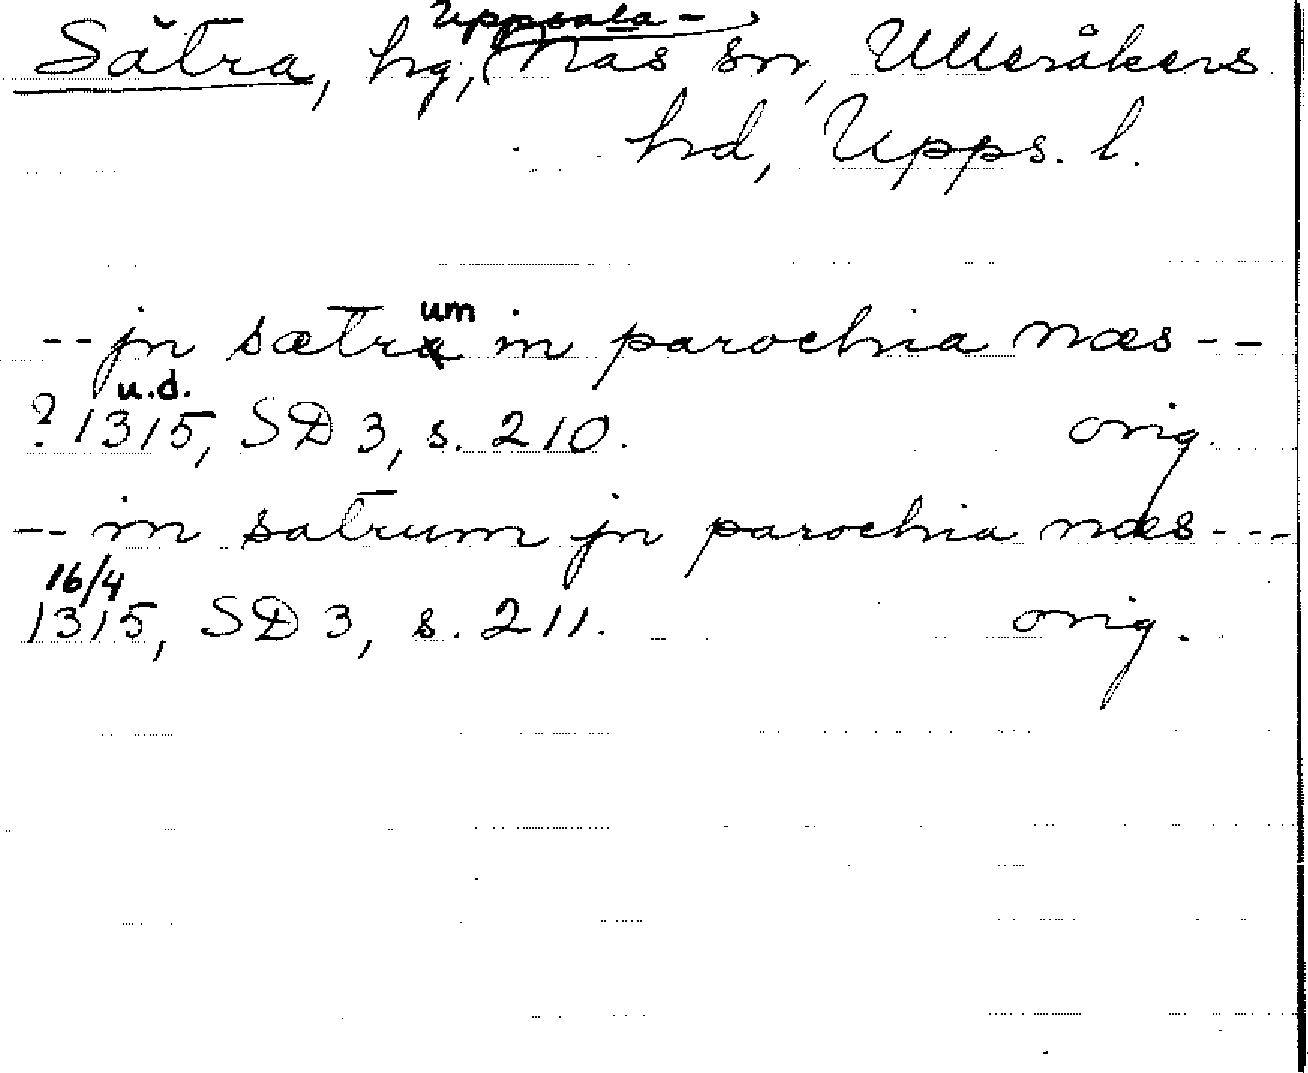 Uppsala-
Sätra, hg, Näs sn, Ulleråkers
hd, Upps. l.
um
-- jn sætra in parochia næs --
u.d.
? 1315, SD 3, s. 210. orig.
-- in satrum jn parochia næs ---
16/4
1315, SD 3, s. 211. orig.